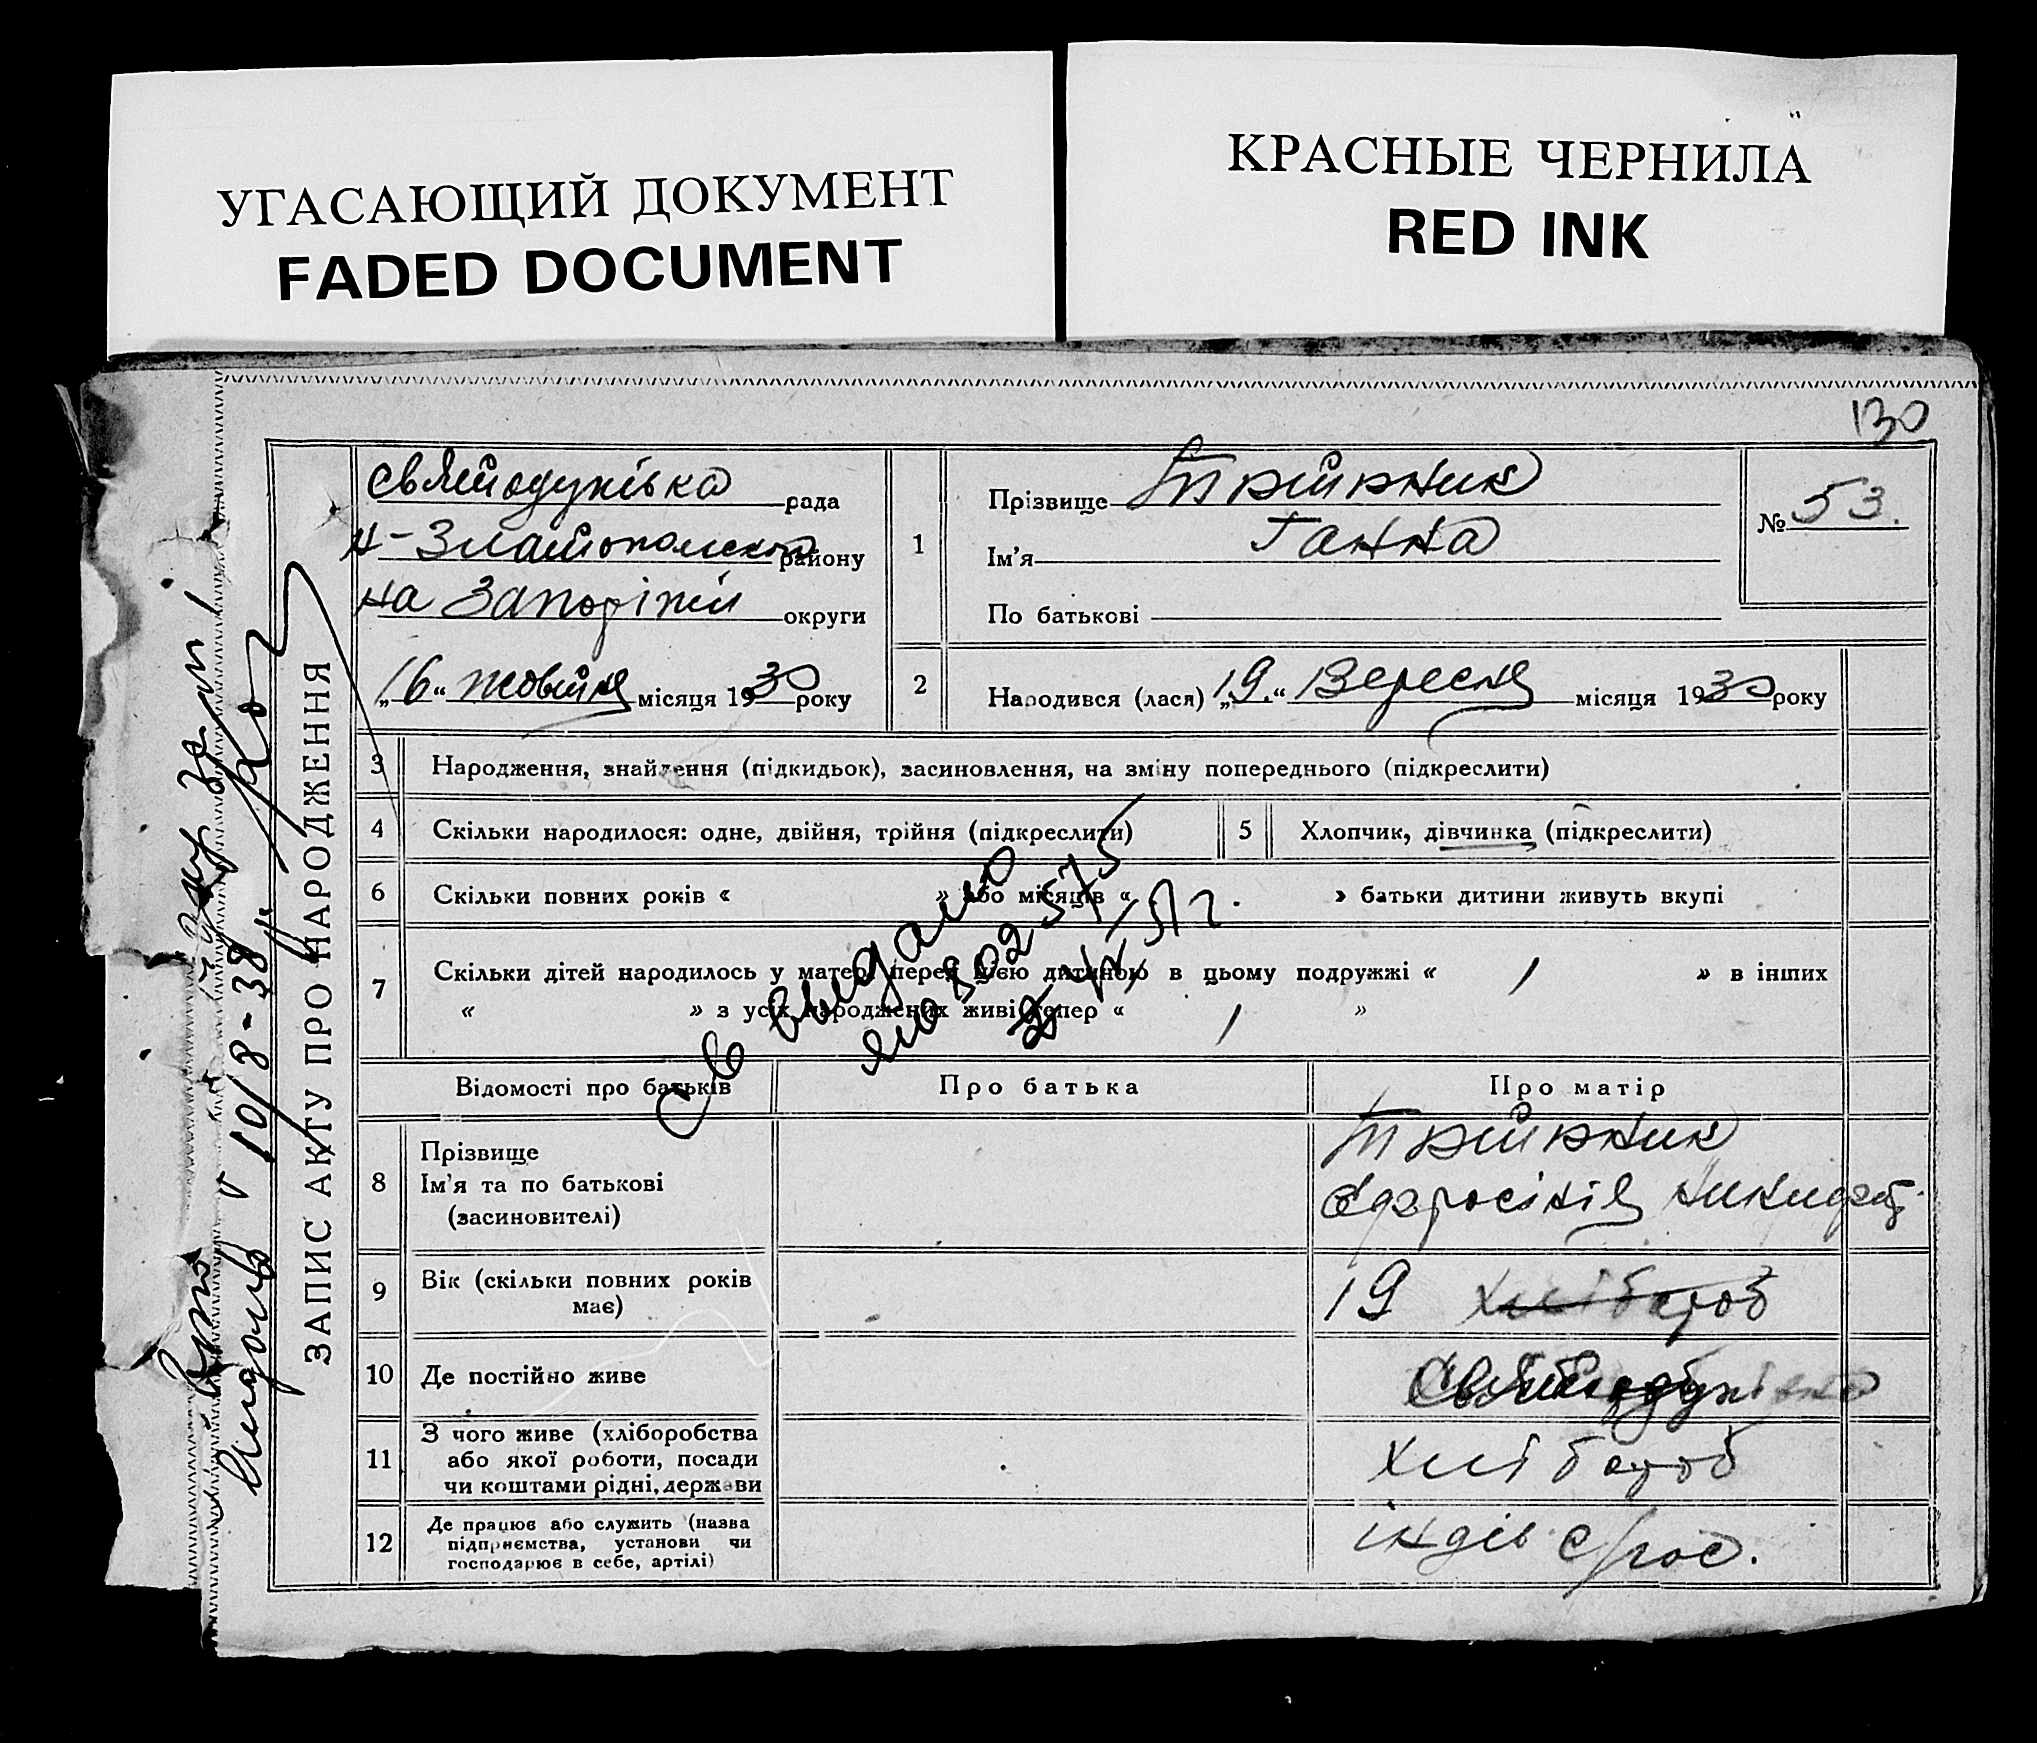 УГАСАЮЩИЙ ДОКУМЕНТ
FADED DOCUMENT
КРАСНЫЕ ЧЕРНИЛА
RED INK
130
ЗАПИС АКТУ ПРО НАРОДЖЕННЯ
рада
району
на округи
„16“ жовтня місяця 1930 року
1
Прізвище
Ім'я Ганна
По батькові
№ 53.
2
Народився (лася) „19.“ Вересня місяця 1930 року
3 Народження, знайдення (підкидьок), засиновлення, на зміну попереднього (підкреслити)
4 Скільки народилося: одне, двійня, трійня (підкреслити)
5 Хлопчик, дівчинка (підкреслити)
6 Скільки повних років « » або місяців « » батьки дитини живуть вкупі
7 Скільки дітей народилось у матері перед цією дитиною в цьому подружжі « / » в інших
« » з усіх народжених живі тепер « / »
Св выдано
802575
Відомості про батьків
Про батька
Про матір
8 Прізвище
Ім'я та по батькові
(засиновителі)
9 Вік (скільки повних років
має)
19 хлібороб
10 Де постійно живе
11 З чого живе (хліборобства
або якої роботи, посади
чи коштами рідні, держави
хлібороб
12 Де працює або служить (назва
підприємства, установи чи
господарює в себе, артілі)
індів
10/8-38